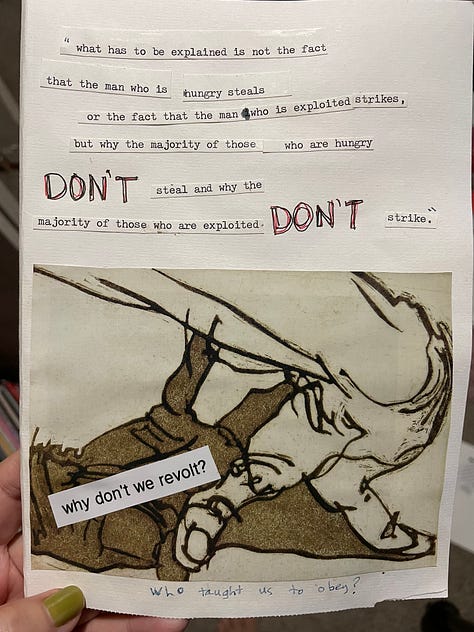 “ what has to be explained is not the fact
that the man who is hungry steals
or the fact that the man who is exploited strikes,
but why the majority of those who are hungry
DON'T steal and why the
majority of those who are exploited DON'T strike.”
why don't we revolt?
Who taught us to obey?